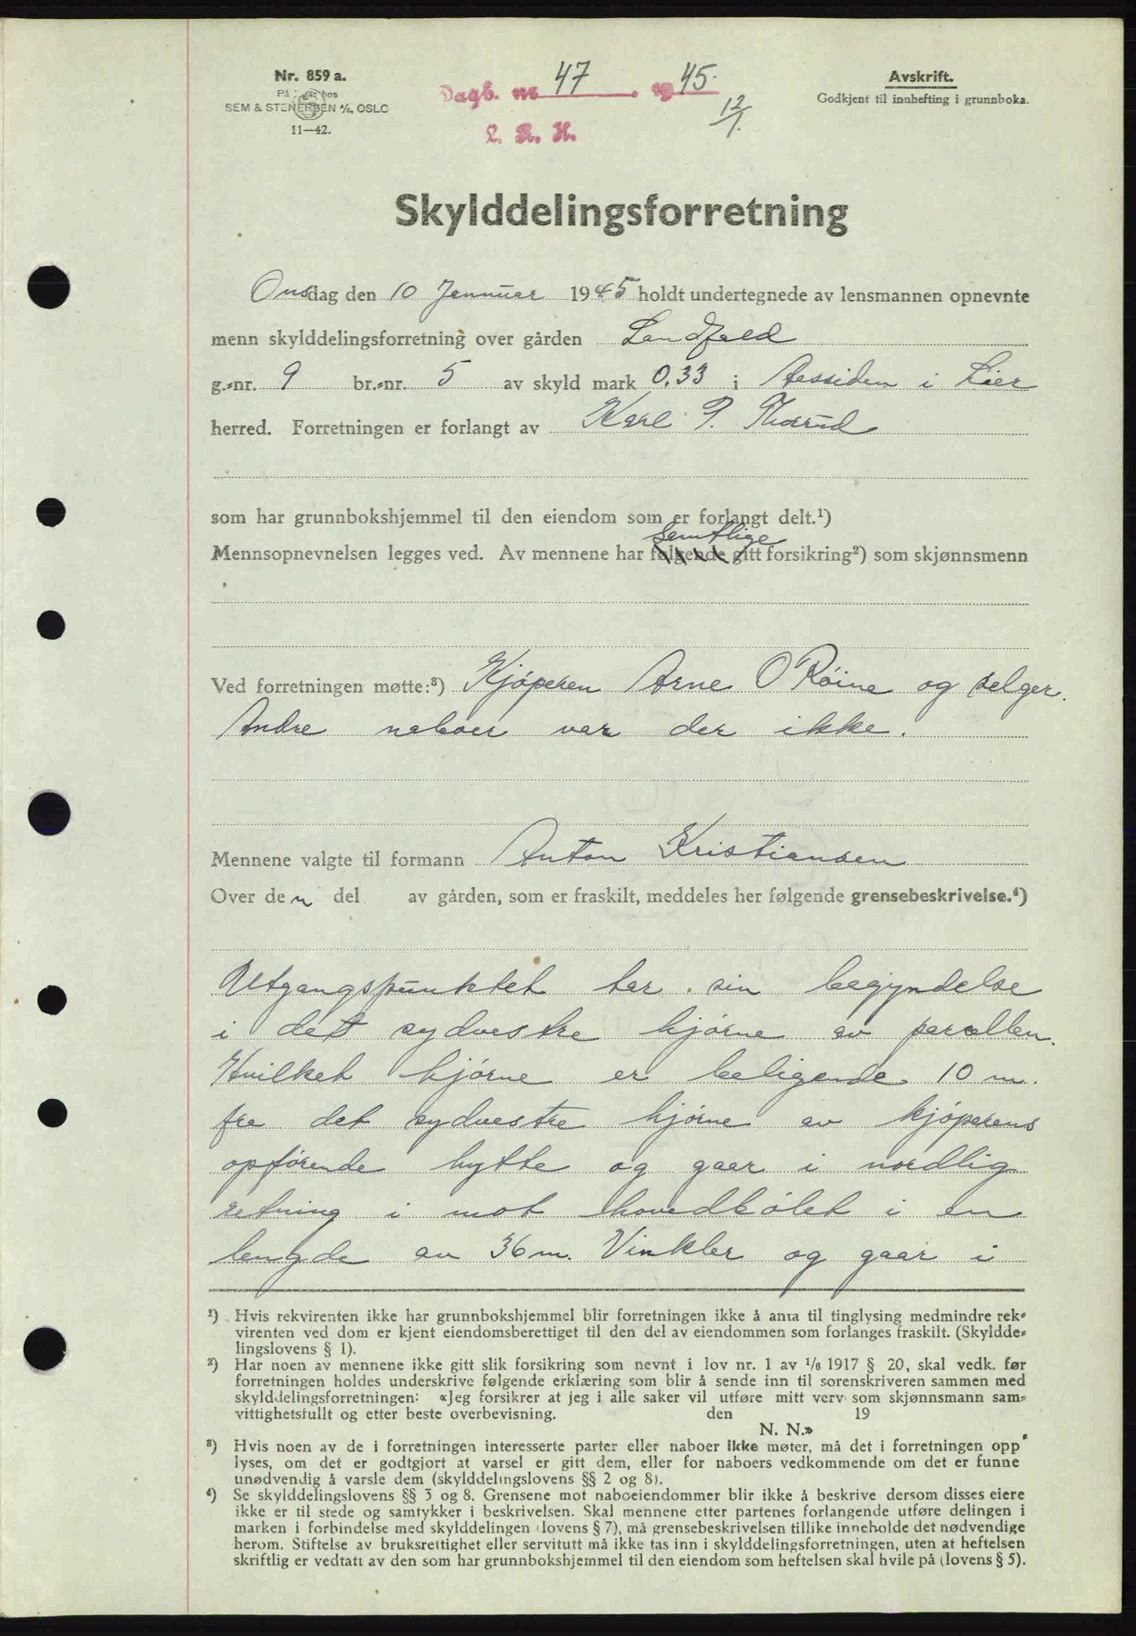 Nr. 859 a.
På lager hos
SEM & STENERSEN A/S, OSLO
11—42.
Dagb. nr. 47 . 1945.
12/1.
L. R. H.
Avskrift.
Godkjent til innhefting i grunnboka.
Skylddelingsforretning
Onsdag den 10 Jannuar 1945 holdt undertegnede av lensmannen opnevnte
menn skylddelingsforretning over gården Landfald
g.-nr. 9 br.-nr. 5 av skyld mark 0.33 i Aassiden i Lier
herred. Forretningen er forlangt av Karl P. Thorud
som har grunnbokshjemmel til den eiendom som er forlangt delt.¹)
samtlige
Mennsopnevnelsen legges ved. Av mennene har følgende gitt forsikring²) som skjønnsmenn
Ved forretningen møtte:³) Kjøperen Arne O Røine og selger.
Andre naboer var der ikke.
Mennene valgte til formann Anton Kristiansen
Over den del av gården, som er fraskilt, meddeles her følgende grensebeskrivelse.⁴)
Utgangspunktet tar sin begyndelse
i det sydvestre hjørne av parsellen.
Hvilket hjørne er beligende 10 m.
fra det sydvestre hjørne av kjøperens
opførende hytte og gaar i nordlig
retning i mot hovedbølet i en
lengde av 36 m. Vinkler og gaar i
¹) Hvis rekvirenten ikke har grunnbokshjemmel blir forretningen ikke å anta til tinglysing medmindre rek-
virenten ved dom er kjent eiendomsberettiget til den del av eiendommen som forlanges fraskilt. (Skyldde-
lingslovens § 1).
²) Har noen av mennene ikke gitt slik forsikring som nevnt i lov nr. 1 av 1/6 1917 § 20, skal vedk. før
forretningen holdes underskrive følgende erklæring som blir å sende inn til sorenskriveren sammen med
skylddelingsforretningen: «Jeg forsikrer at jeg i alle saker vil utføre mitt verv som skjønnsmann sam-
vittighetsfullt og etter beste overbevisning. den 19
N. N.»
³) Hvis noen av de i forretningen interesserte parter eller naboer ikke møter, må det i forretningen opp
lyses, om det er godtgjort at varsel er gitt dem, eller for naboers vedkommende om det er funne
unødvendig å varsle dem (skylddelingslovens §§ 2 og 8).
⁴) Se skylddelingslovens §§ 3 og 8. Grensene mot naboeiendommer blir ikke å beskrive dersom disses eiere
ikke er til stede og samtykker i beskrivelsen. Skal mennene etter partenes forlangende utføre delingen i
marken i forbindelse med skylddelingen (lovens § 7), må grensebeskrivelsen tillike inneholde det nødvendige
herom. Stiftelse av bruksrettighet eller servitutt må ikke tas inn i skylddelingsforretningen, uten at heftelsen
skriftlig er vedtatt av den som har grunnbokshjemmel til den eiendom som heftelsen skal hvile på (lovens § 5).